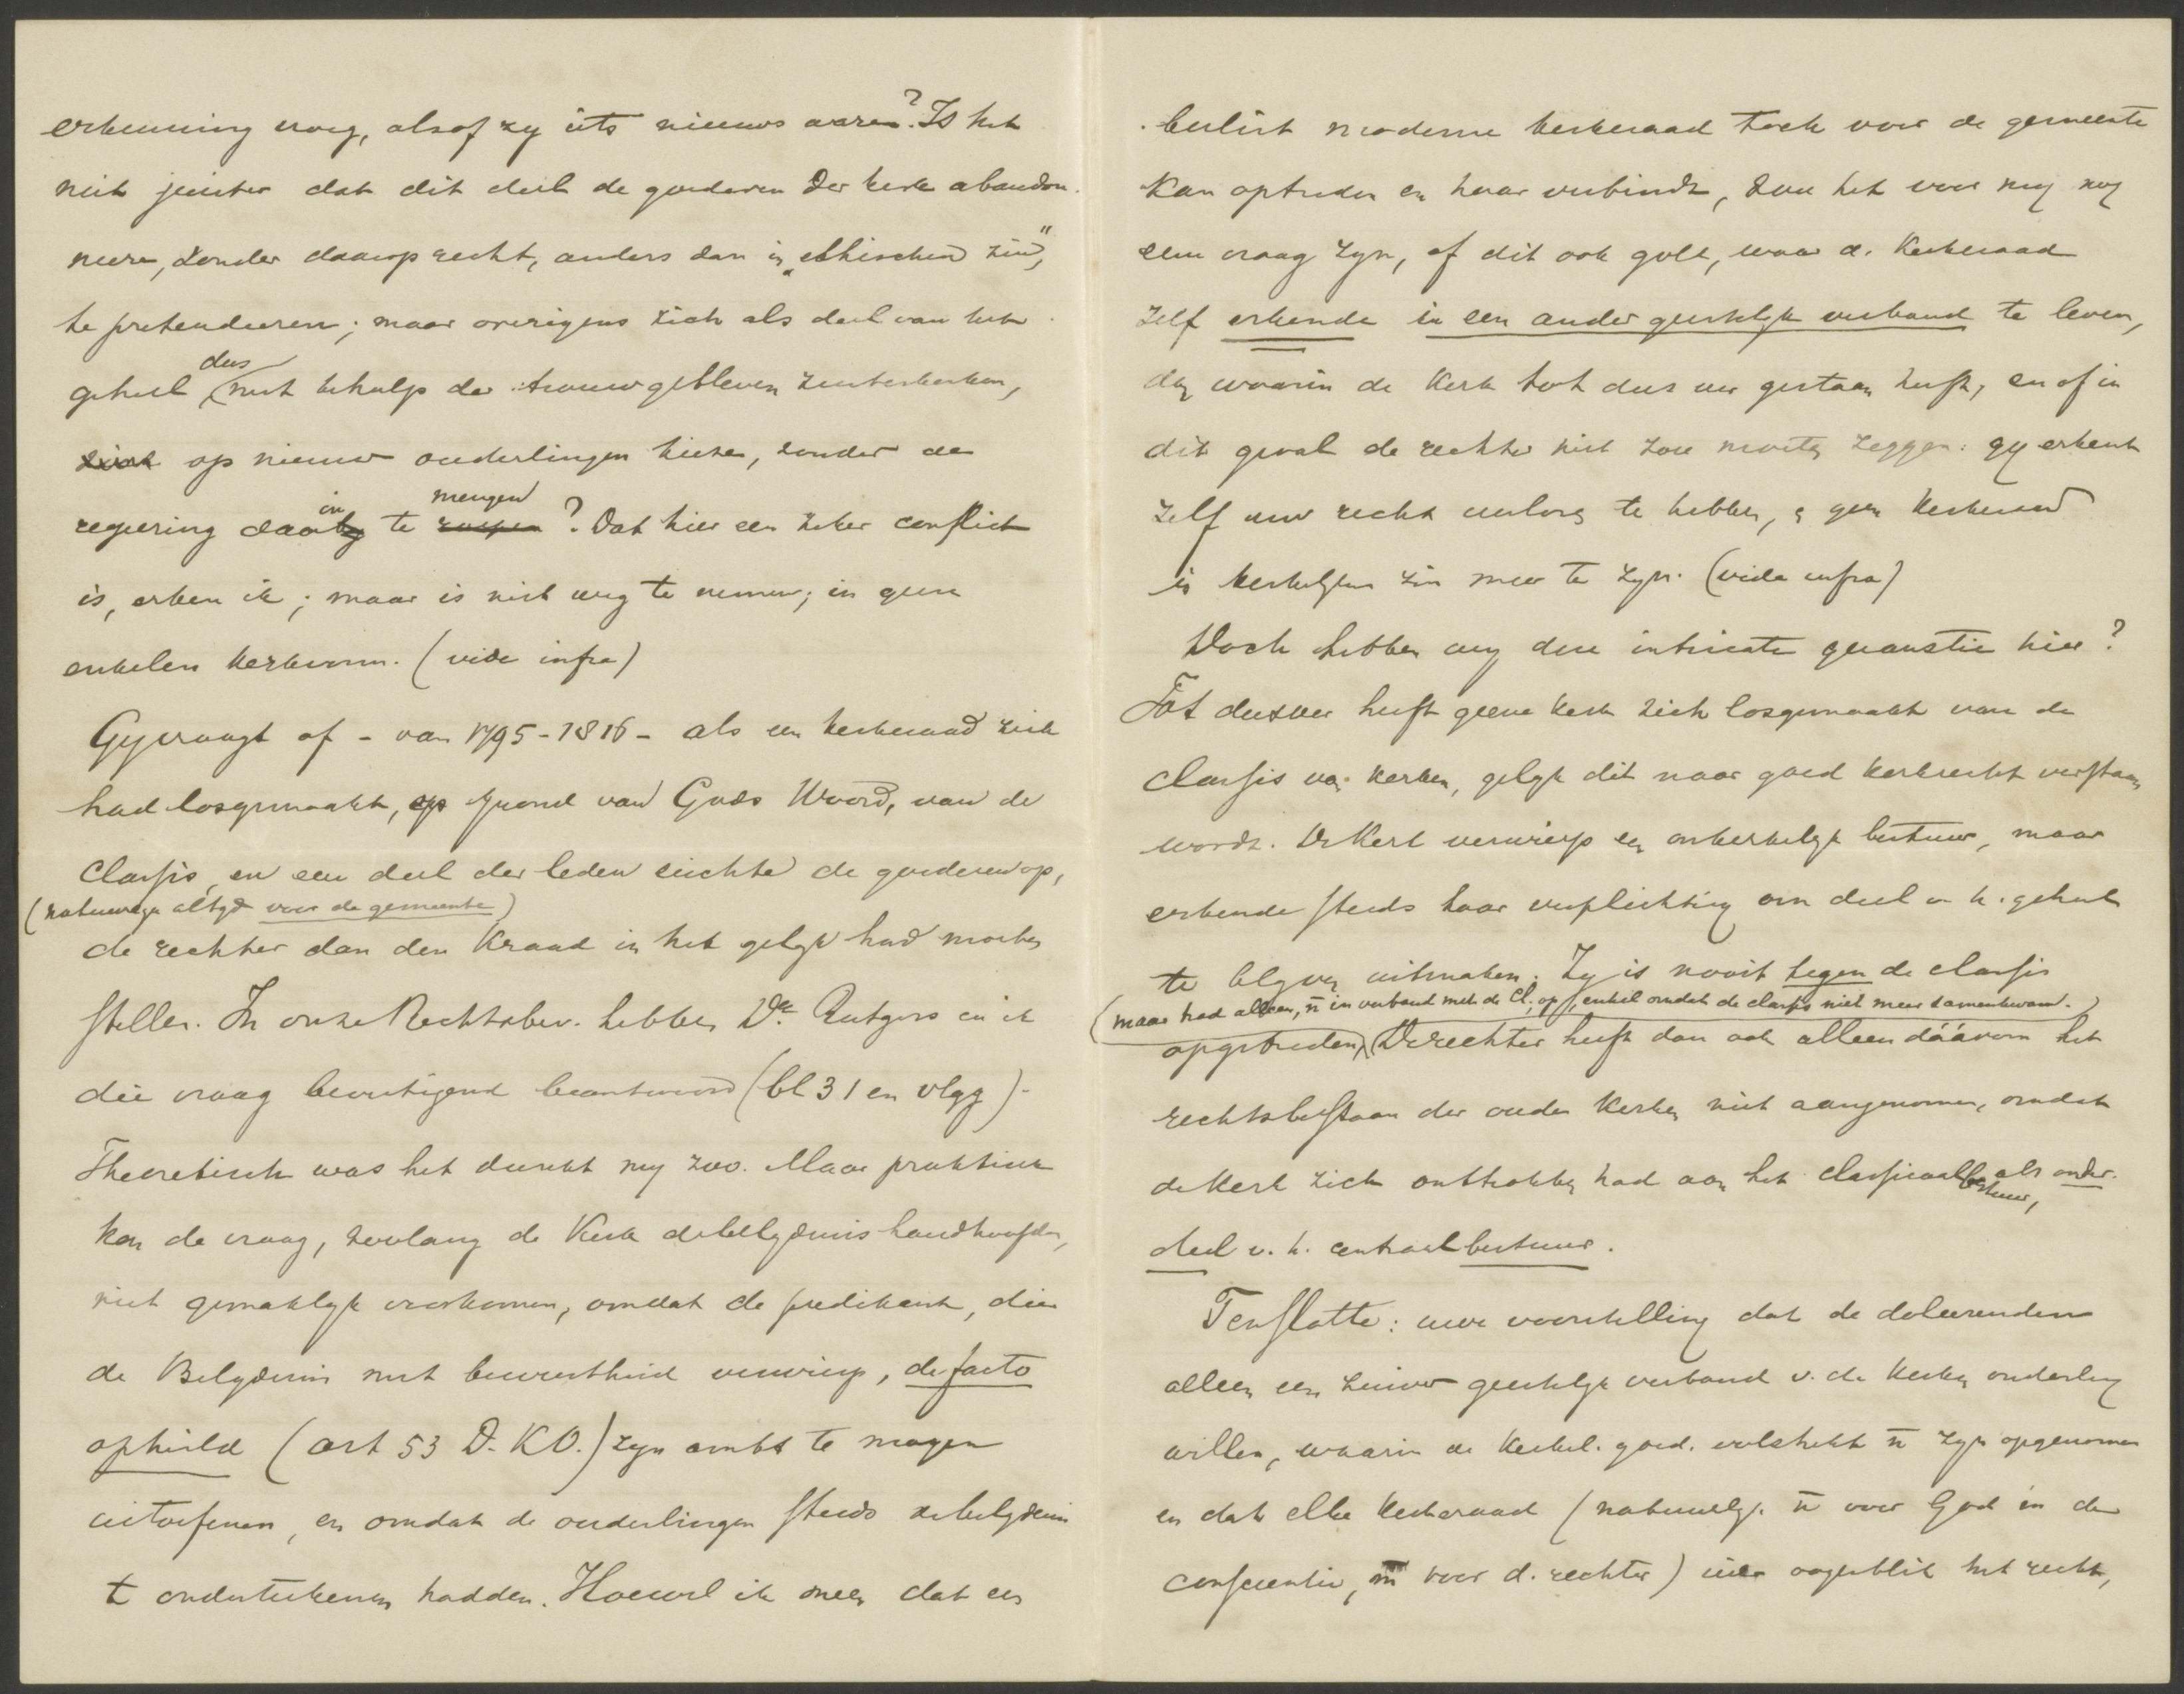 erkenning vroeg, alsof zy iets nieuws waren? Is het
niet juister dat dit deel de goederen der kerk abandon-
neere, zonder daarop recht, anders dan in „ethischen zin",
te pretendeeren; maar overigens zich als deel van het
geheel, dus met behulp der trouwgebleven zusterkerken,
op nieuw ouderlingen kieze, zonder de
regeering daarin te mengen? Dat hier een zeker conflict
is, erken ik; maar is niet weg te nemen; in geen
enkelen kerkvorm. (vide infra)
Gy vraagt of - van 1795-1816 - als een kerkeraad zich
had losgemaakt, op grond van Gods Woord, van de
classis, en een deel der leden eischte de goederen op,
(natuurlyk altyd voor de gemeente)
de rechter dan den Kraad in het gelyk had moeten
stellen. In onze Rechtsbev. hebben Dr. Rutgers en ik
die vraag bevestigend beantwoord (bl 31 en vlgg).
Theoretisch was het dunkt my zoo. Maar praktisch
kon de vraag, zoolang de Kerk de belydenis handhaafde,
niet gemaklyk voorkomen, omdat de predikant, die
de Belydenis met bewustheid verwierp, de facto
ophield (art 53 D. KO.) zyn ambt te mogen
uitoefenen, en omdat de ouderlingen steeds de belydenis
te onderteekenen hadden. Hoewel ik meen dat een
beslist moderne kerkeraad toch voor de gemeente
kan optreden en haar verbindt, zou het voor my nog
eene vraag zyn, of dit ook gold, waar d. Kerkeraad
zelf erkende in een ander geestelyk verband te leven,
dan waarin de Kerk tot dus ver gestaan heeft, en of in
dit geval de rechter niet zou moeten zeggen: gy erkent
zelf uw recht verloren te hebben, geen Kerkeraad
in kerkelyken zin meer te zyn. (vide infra)
Doch hebben wy deze intricate quaestie hier?
Tot dusver heeft geene kerk zich losgemaakt van de
classis van kerken, gelyk dit naar goed kerkrecht verstaan
wordt. De Kerk verwierp een onkerkelyk bestuur, maar
erkende steeds haar verplichting om deel v. h. geheel
te blyven uitmaken. Zy is nooit tegen de classis
(maar trad alleen, n̄ in verband met de Cl. op, enkel omdat de classis niet meer samenkwam.)
opgetreden. De rechter heeft dan ook alleen dáárom het
rechtsbestaan der oude Kerken niet aangenomen, omdat
de Kerk zich onttrokken had aan het classicaal bestuur, als onder-
deel v. h. centraal bestuur.
Ten slotte: uwe voorstelling dat de doleerenden
alleen een zuiver geestelyk verband v. de Kerken onderling
willen, waarin de Kerkel. goed. volstrekt n̄ zyn opgenomen
en dat elke Kerkeraad (natuurlyk n̄ voor God in de
conscientie, m̄ voor d. rechter) ieder oogenblik het recht,